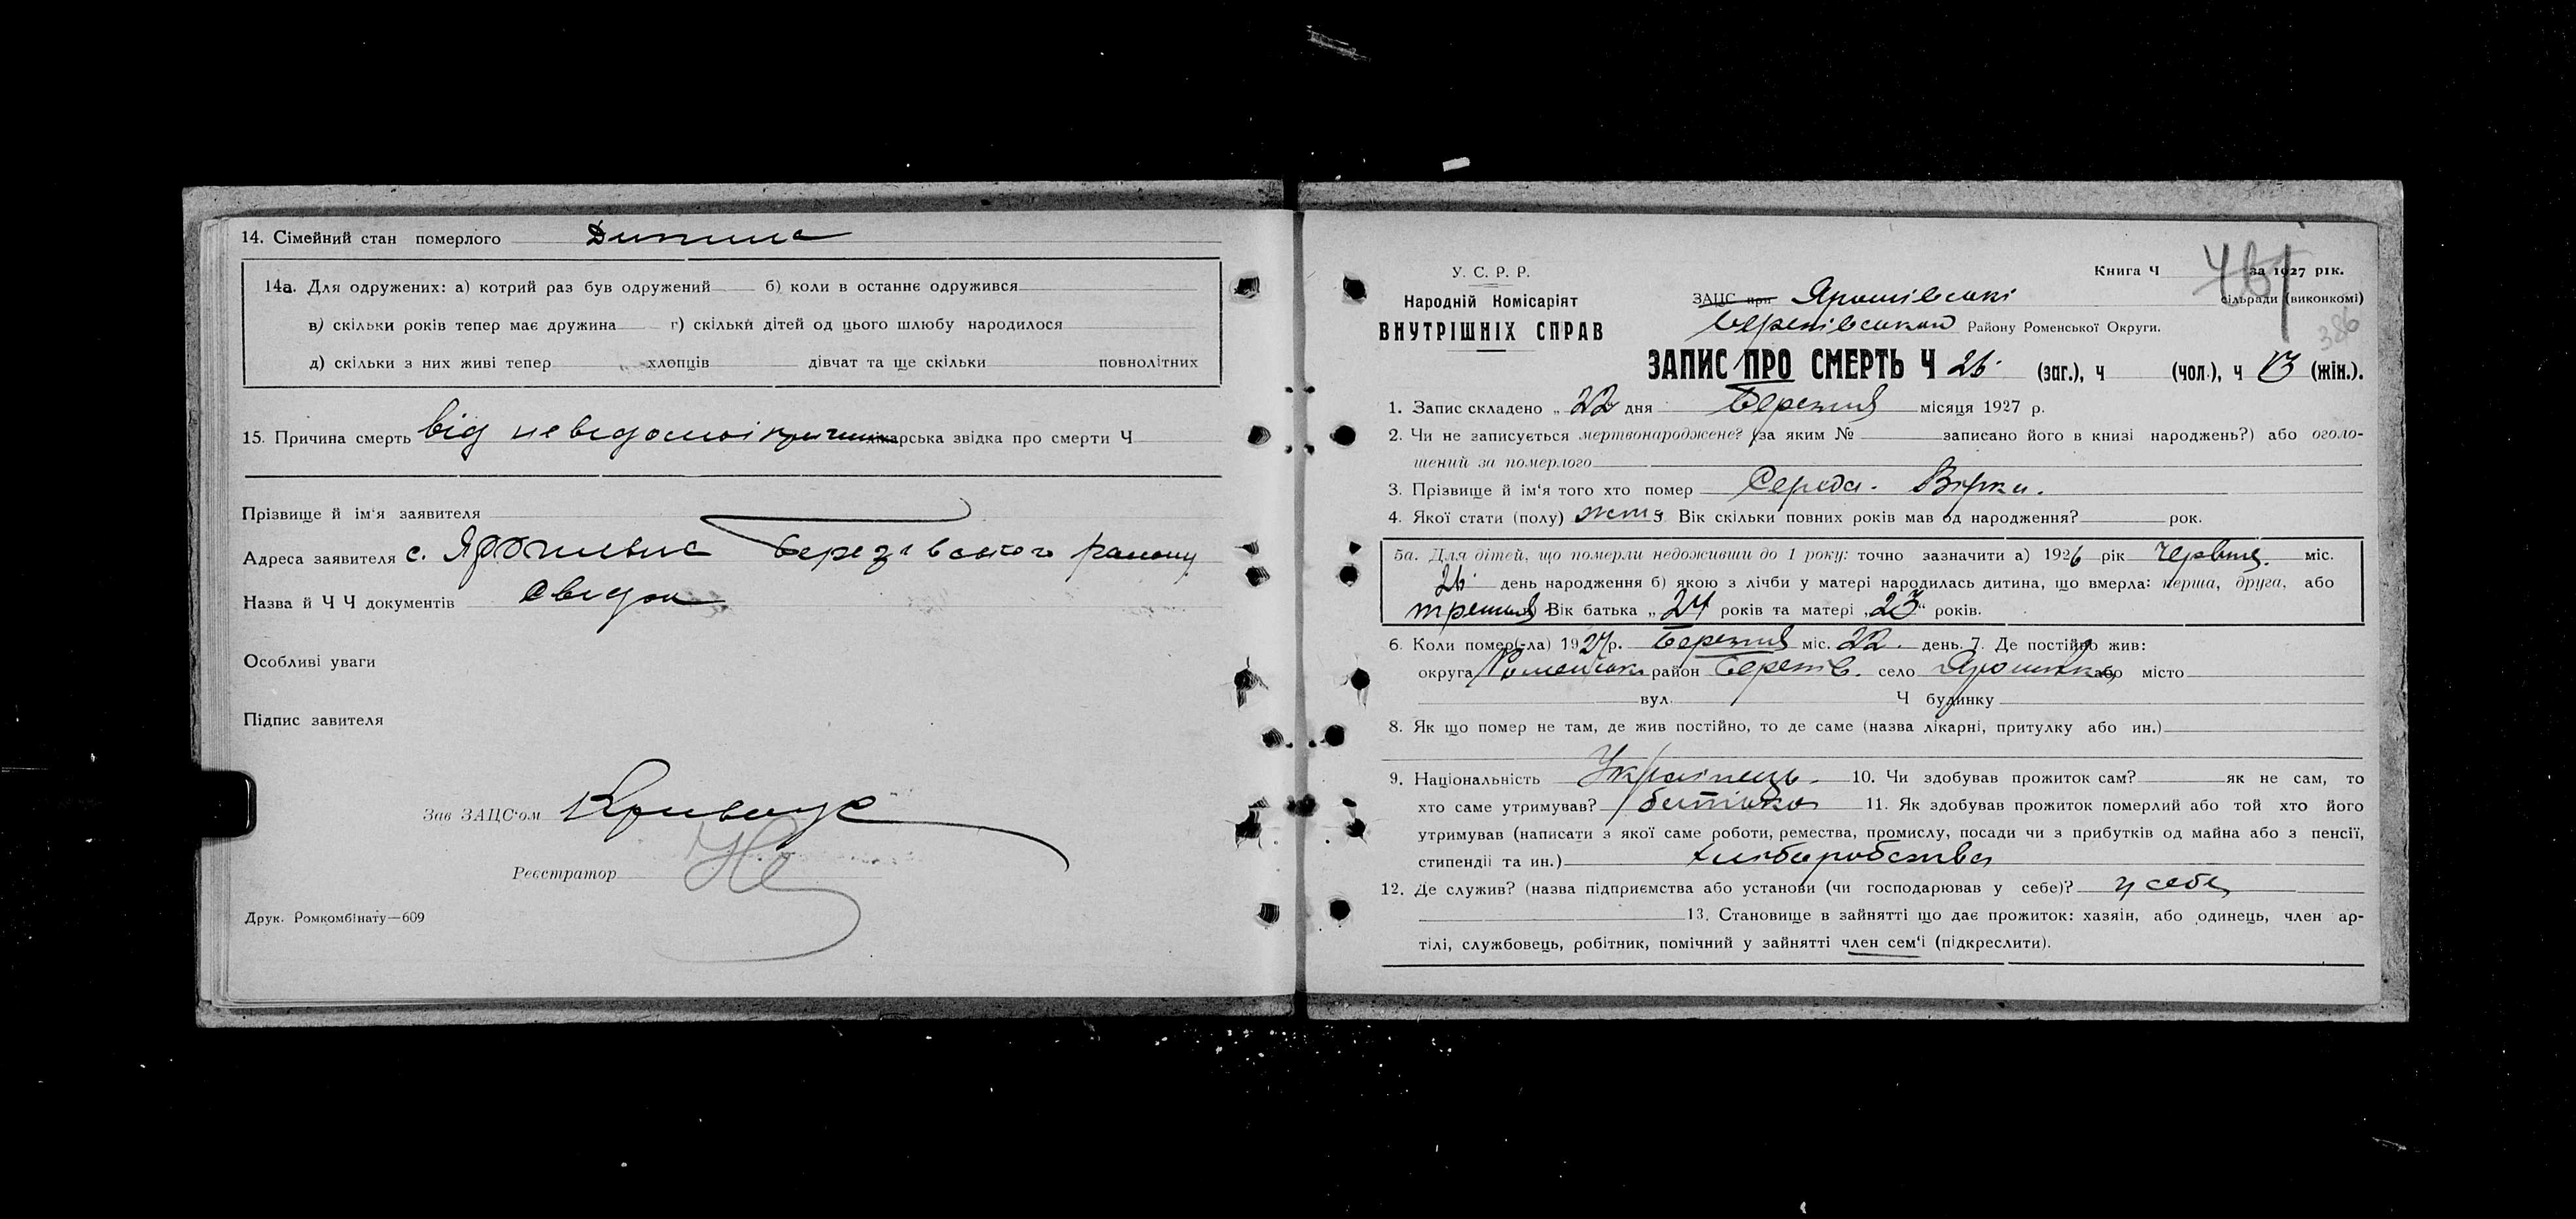 14. Сімейний стан померлого Дитина
14а. Для одружених: а) котрий раз був одружений б) коли в останнє одружився
в) скільки років тепер має дружина г) скільки дітей од цього шлюбу народилося
д) скільки з них живі тепер „ хлопців дівчат та ще скільки повнолітних
15. Причина смерть від невідомої причини карська звідка про смерти Ч
Прізвище й ім'я заявителя
Адреса заявителя с. Березівського району
Назва й Ч Ч документів
Особливі уваги
Підпис завителя
Зав ЗАЦС'ом
Реєстратор
Друк. Ромкомбінату—609
У. С. Р. Р.
Народній Комісаріят
ВНУТРІШНІХ СПРАВ
Книга Ч за 1927 рік.
461
ЗАЦС при Ярошівські сільради (виконкомі)
Району Роменської Округи.
386
ЗАПИС ПРО СМЕРТЬ Ч 26 (заг.), ч (чол.), ч 13 (жін.).
1. Запис складено „ 22 дня Березня місяця 1927 р.
2. Чи не записується мертвонароджене? (за яким № записано його в книзі народжень?) або оголо-
шений за померлого
3. Прізвище й ім'я того хто помер Середа. Вірка.
4. Якої стати (полу) жін 5 Вік скільки повних років мав од народження? рок.
5а. Для дітей, що померли недоживши до 1 року: точно зазначити а) 1926 рік Червня міс.
26 день народження б) якою з лічби у матері народилась дитина, що вмерла: перша, друга, або
третя Вік батька „ 24 років та матері „23" років.
6. Коли помер(-ла) 1927р. Березня міс. 22. день. 7. Де постійно жив:
округа Роменськ район Березів. село Ярошівка або місто
вул. Ч будинку
8. Як що помер не там, де жив постійно, то де саме (назва лікарні, притулку або ин.)
9. Національність Українець. 10. Чи здобував прожиток сам? як не сам, то
хто саме утримував? батько 11. Як здобував прожиток померлий або той хто його
утримував (написати з якої саме роботи, ремества, промислу, посади чи з прибутків од майна або з пенсії,
стипендії та ин.) хліборобства
12. Де служив? (назва підприємства або установи (чи господарював у себе)? у себе
13. Становище в зайнятті що дає прожиток: хазяін, або одинець, член ар-
тілі, службовець, робітник, помічний у зайнятті член сем'і (підкреслити).